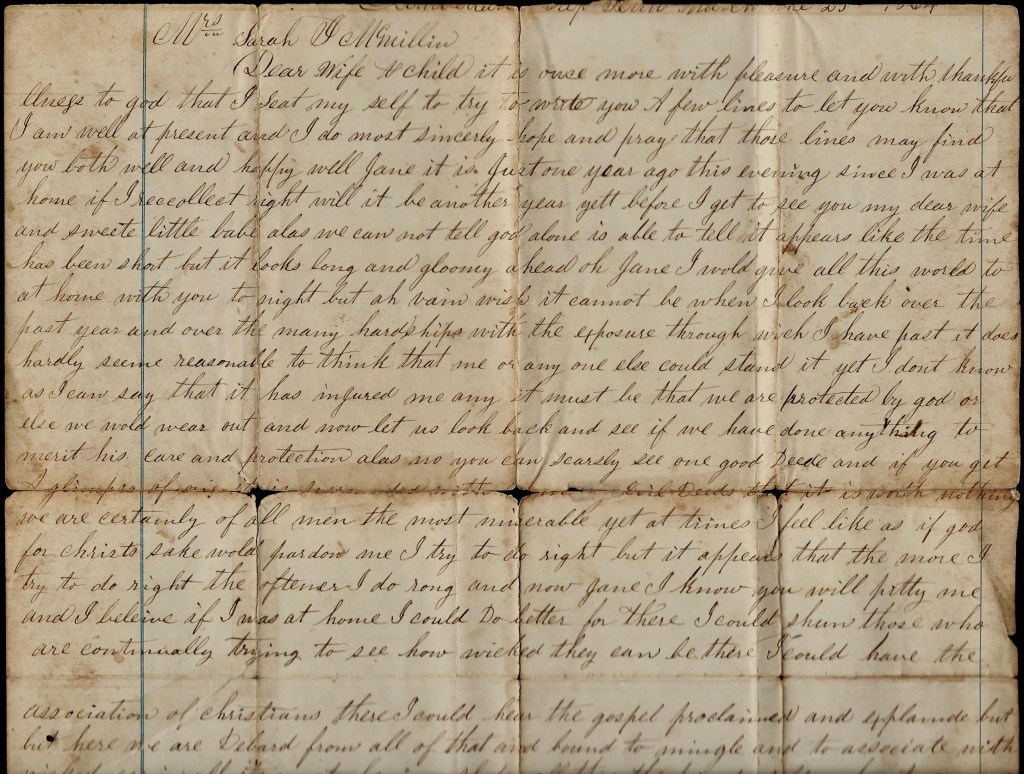 Cumberland Gap Tenn March the 25 1864
Mrs Sarah J McMillin
Dear Wife & child it is once more with pleasure and with thankfu
llness to god that I Seat my self to try to write you A few lines to let you know that
I am well at present and I do most sincerly hope and pray that those lines may find
you both well and happy well Jane it is Just one year ago this evening since I was at
home if I recollect right will it be another year yett before I get to see you my dear wife
and sweete little babe alas we can not tell god alone is able to tell it appears like the time
has been short but it looks long and gloomy ahead oh Jane I wold give all this world to
at home with you to night but ah vain wish it cannot be when I look back over the
past year and over the many hardships with the exposure through wich I have past it does
hardly seeme reasonable to think that me or any one else could stand it yet I dont know
as I can say that it has ingured me any it must be that we are protected by god or
else we wold wear out and now let us look back and see if we have done anything to
merit his care and protection alas no you can scarsly see one good Deede and if you get
A glimpse of one it is with Deeds that it is worth nothing
we are certainly of all men the most miserable yet at times I feel like as if god
for christs sake wold pardow me I try to do right but it appears that the more I
try to do right the oftener I do rong and now Jane I know you will pitty me
and I beleive if I was at home I could Do better for there I could shun those who
are continually trying to see how wicked they can be there I could have the
association of christians there I could hear the gospel proclaimed and explainde but
but here we are Debard from all of that and bound to mingle and to associate with